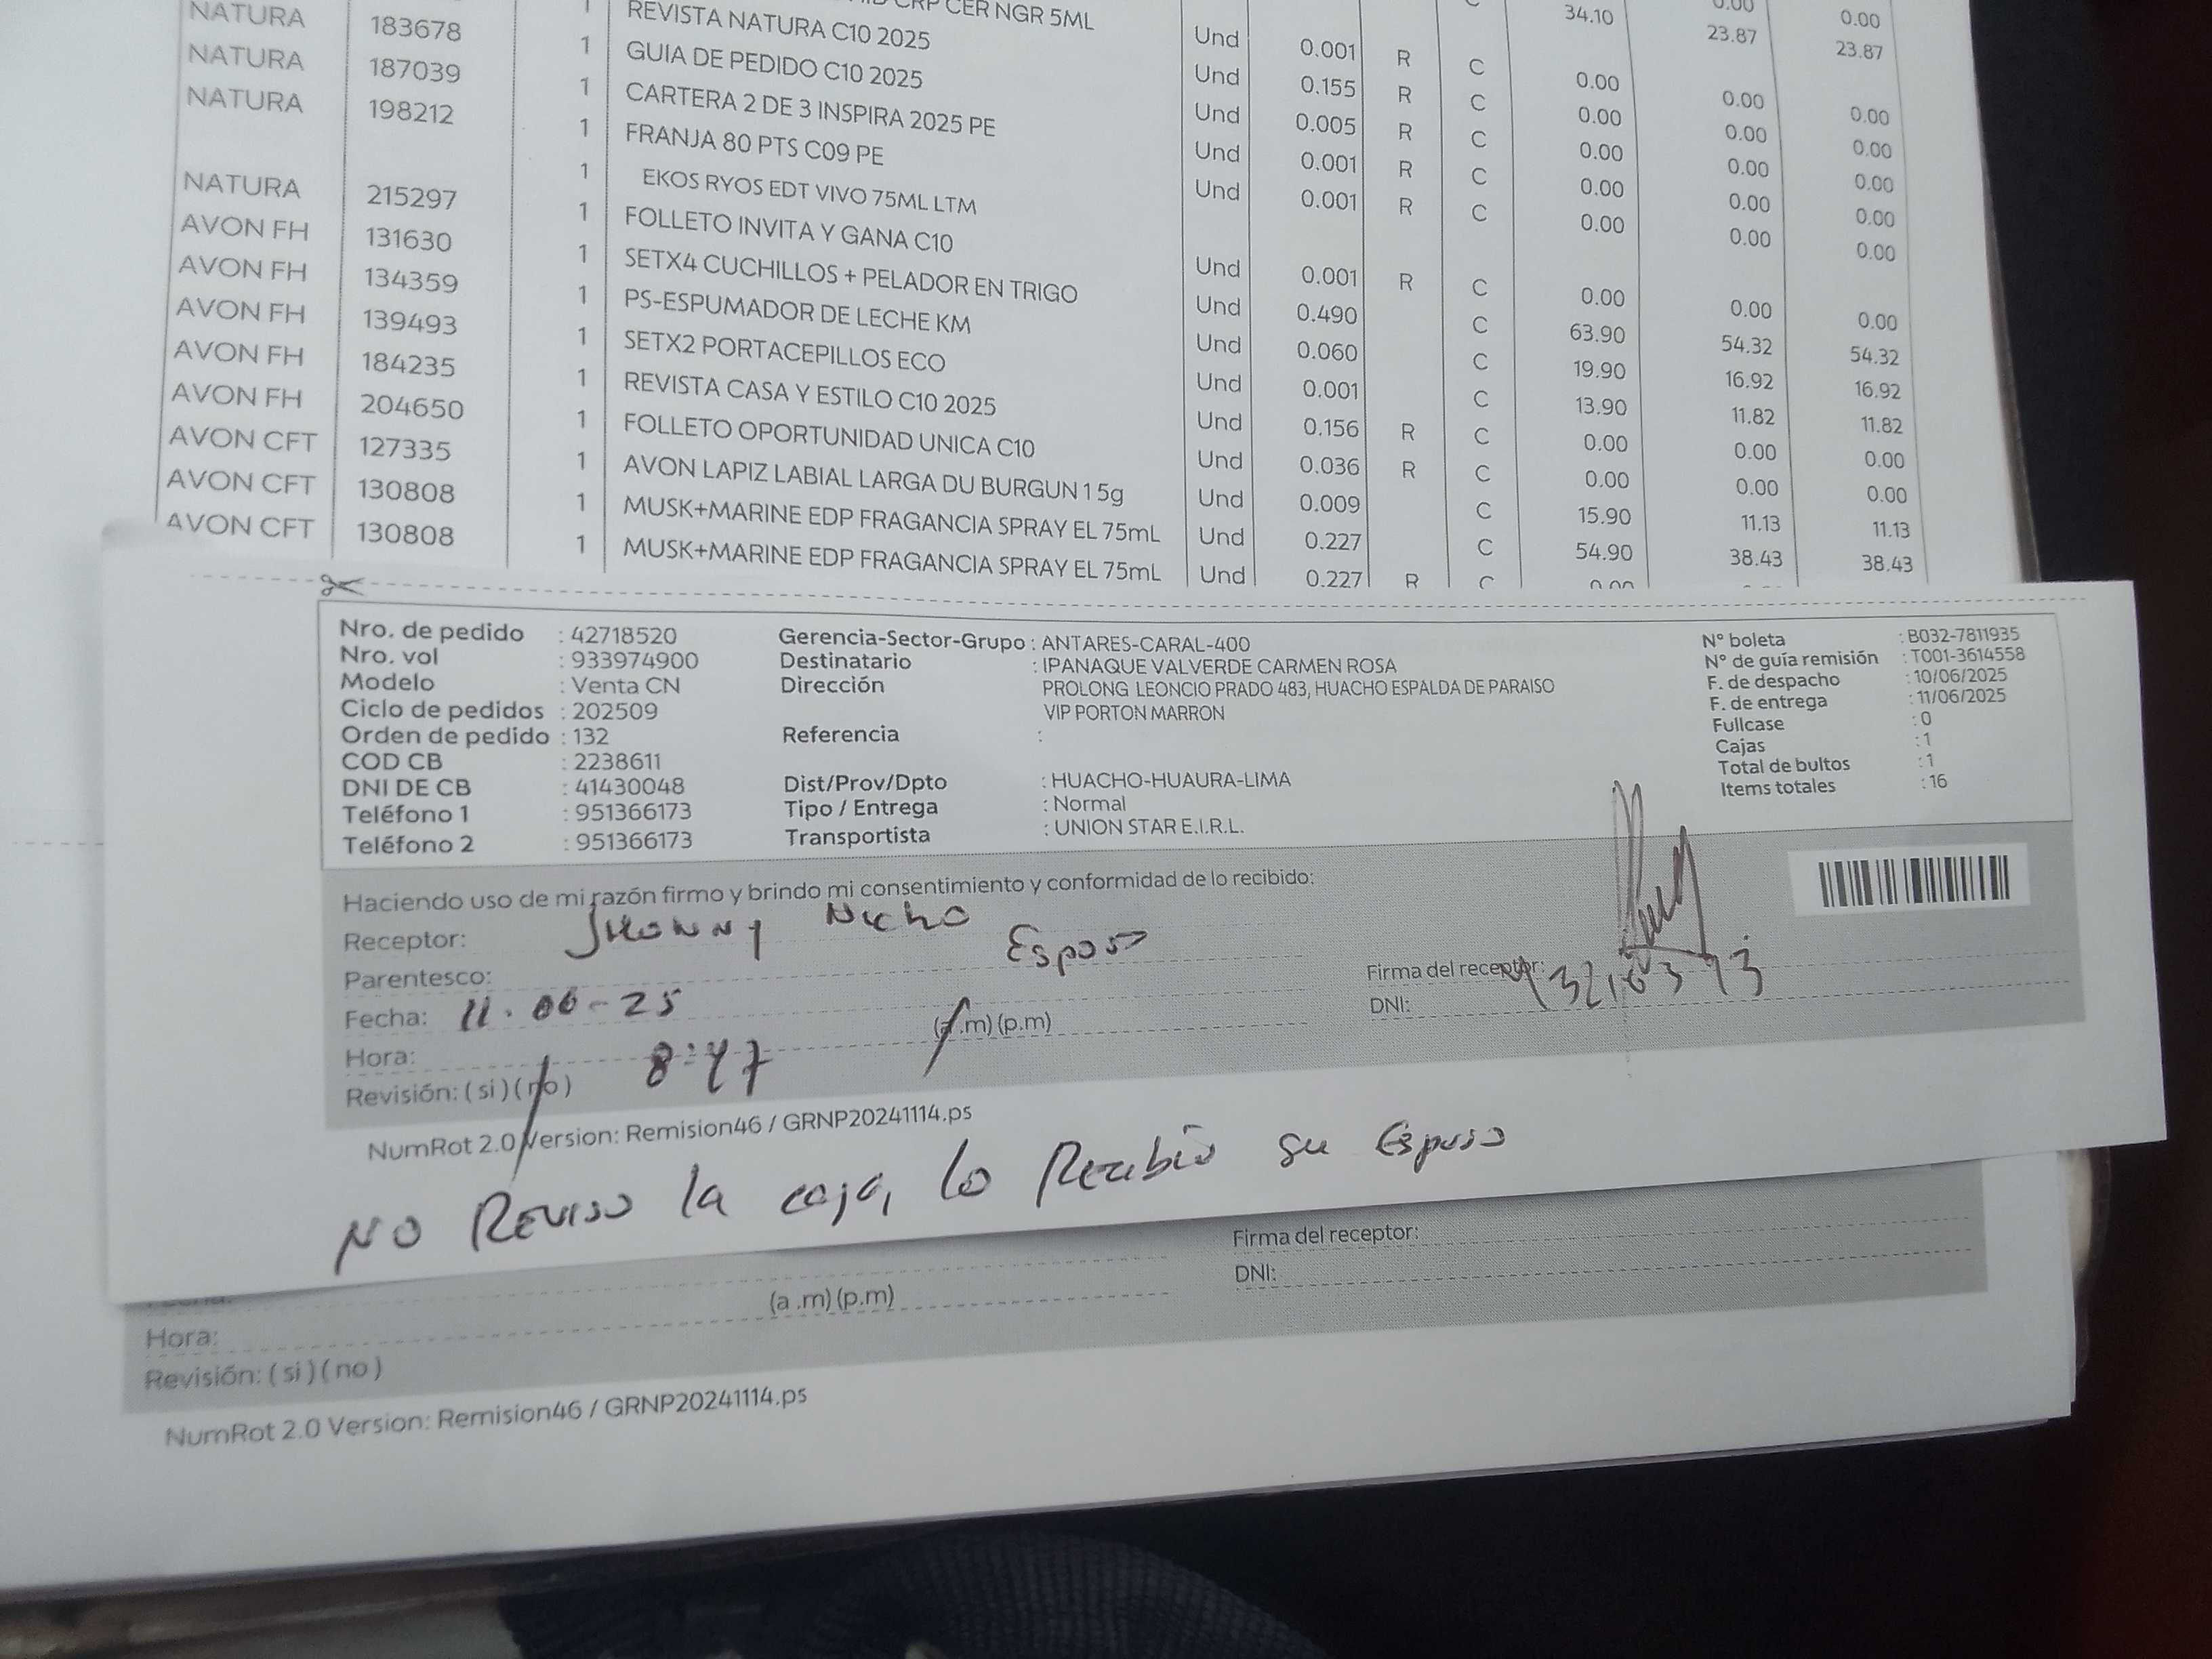 CRP CER NGR 5ML C 34.10 0.00 0.00
NATURA 183678 1 REVISTA NATURA C10 2025 Und 0.001 R C 23.87 23.87
NATURA 187039 1 GUIA DE PEDIDO C10 2025 Und 0.155 R C 0.00 0.00 0.00
NATURA 198212 1 CARTERA 2 DE 3 INSPIRA 2025 PE Und 0.005 R C 0.00 0.00 0.00
1 FRANJA 80 PTS C09 PE Und 0.001 R C 0.00 0.00 0.00
1 EKOS RYOS EDT VIVO 75ML LTM Und 0.001 R C 0.00 0.00 0.00
NATURA 215297 1 FOLLETO INVITA Y GANA C10 Und 0.001 R C 0.00 0.00 0.00
AVON FH 131630 1 SETX4 CUCHILLOS + PELADOR EN TRIGO Und 0.490 C 63.90 54.32 54.32
AVON FH 134359 1 PS-ESPUMADOR DE LECHE KM Und 0.060 C 19.90 16.92 16.92
AVON FH 139493 1 SETX2 PORTACEPILLOS ECO Und 0.001 C 13.90 11.82 11.82
AVON FH 184235 1 REVISTA CASA Y ESTILO C10 2025 Und 0.156 R C 0.00 0.00 0.00
AVON FH 204650 1 FOLLETO OPORTUNIDAD UNICA C10 Und 0.036 R C 0.00 0.00 0.00
AVON CFT 127335 1 AVON LAPIZ LABIAL LARGA DU BURGUN 1 5g Und 0.009 C 15.90 11.13 11.13
AVON CFT 130808 1 MUSK+MARINE EDP FRAGANCIA SPRAY EL 75mL Und 0.227 C 54.90 38.43 38.43
AVON CFT 130808 1 MUSK+MARINE EDP FRAGANCIA SPRAY EL 75mL Und 0.227 R C 0.00
Nro. de pedido : 42718520 Gerencia-Sector-Grupo : ANTARES-CARAL-400 N° boleta : B032-7811935
Nro. vol : 933974900 Destinatario : IPANAQUE VALVERDE CARMEN ROSA N° de guía remisión : T001-3614558
Modelo : Venta CN Dirección PROLONG LEONCIO PRADO 483, HUACHO ESPALDA DE PARAISO F. de despacho : 10/06/2025
Ciclo de pedidos : 202509 VIP PORTON MARRON F. de entrega : 11/06/2025
Orden de pedido : 132 Referencia : Fullcase : 0
COD CB : 2238611 Cajas : 1
DNI DE CB : 41430048 Dist/Prov/Dpto : HUACHO-HUAURA-LIMA Total de bultos : 1
Teléfono 1 : 951366173 Tipo / Entrega : Normal Items totales : 16
Teléfono 2 : 951366173 Transportista : UNION STAR E.I.R.L.
Haciendo uso de mi razón firmo y brindo mi consentimiento y conformidad de lo recibido:
Receptor: Jhonny Nicho
Parentesco: Esposo Firma del receptor:
Fecha: 11.06-25 (a.m) (p.m) DNI:
Hora: 8:47
Revisión: ( si ) ( no )
NumRot 2.0 Version: Remision46 / GRNP20241114.ps
NO Reviso la caja, lo Recibio su Esposo
Firma del receptor:
(a .m) (p.m) DNI:
Hora:
Revisión: ( si ) ( no )
NumRot 2.0 Version: Remision46 / GRNP20241114.ps